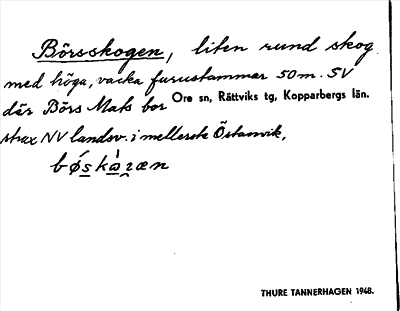 Börsskogen, liten rund skog
med höga, vackra furustammar 50 m. SV
där Börs Mats bor Ore sn, Rättviks tg, Kopparbergs län.
strax NV landsv. i mellersta Östanvik,
THURE TANNERHAGEN 1948.